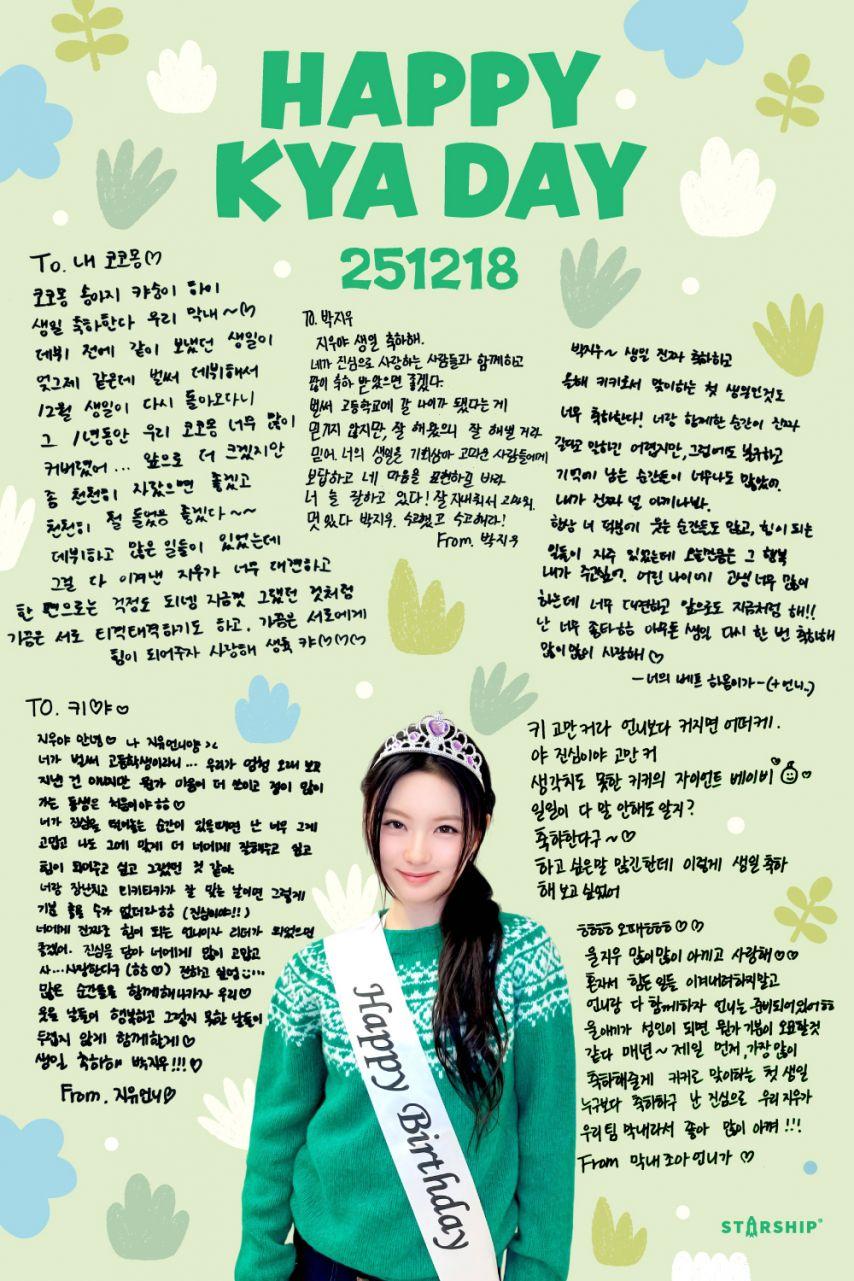 HAPPY
KYA DAY
251218
To. 내 코코몽♡
코코몽 송아지 캬송이 하이
생일 축하한다 우리 막내~♡
데뷔 전에 같이 보냈던 생일이
엊그제 같은데 벌써 데뷔해서
12월 생일이 다시 돌아오다니
그 1년동안 우리 코코몽 너무 많이
커버렸어... 앞으로 더 크겠지만
좀 천천히 자랐으면 좋겠고
천천히 철 들었음 좋겠다~~
데뷔하고 많은 일들이 있었는데
그걸 다 이겨낸 지우가 너무 대견하고
한 편으로는 걱정도 되넹 지금껏 그랬던 것처럼
가끔은 서로 티격태격하기도 하고, 가끔은 서로에게
힘이 되어주자 사랑해 생축 캬♡♡♡
TO. 박지우
지우야 생일 축하해.
네가 진심으로 사랑하는 사람들과 함께하고
많이 축하 받았으면 좋겠다.
벌써 고등학교에 갈 나이가 됐다는게
믿기지 않지만, 잘 해왔으니 잘 해낼 거라
믿어. 너의 생일은 기회삼아 고마운 사람들에게
보답하고 네 마음을 표현하길 바라
너 늘 잘하고 있다! 잘 자내줘서 고마워.
멋있다 박지우. 수고했고 수고해라!
From. 박지우
박지우~ 생일 진짜 축하하고
올해 키키로서 맞이하는 첫 생일인것도
너무 축하한다! 너랑 함께한 순간이 진짜
길다고 말하긴 어렵지만, 그럼에도 불구하고
기억에 남는 순간들이 너무나도 많았어.
내가 진짜 널 아끼나봐.
항상 너 덕분에 웃는 순간들도 많고, 힘이 되는
일들이 자주 있었는데 오늘만큼은 그 행복
내가 주고싶어. 어린 나이에 고생 너무 많이
하는데 너무 대견하고 앞으로도 지금처럼 해!!
난 너무 좋타ㅎㅎ 아무튼 생일 다시 한 번 축하해
많이많이 사랑해♡
-너의 베프 하음이가-(+언니..)
TO. 키♡야♡
지우야 안녕♡ 나 지유언니양 >.<
너가 벌써 고등학생이라니... 우리가 엄청 오래 보고
지낸 건 아니지만 뭔가 마음이 더 쓰이고 정이 많이
가는 동생은 처음이야ㅎㅎ♡
너가 진심을 털어놓는 순간이 있을때면 난 너무 그게
고맙고 나도 그에 맞게 더 너에게 잘해주고 싶고
힘이 되어주고 싶고 그랬었던 것 같아
너랑 장난치고 티키타카가 잘 맞는 날이면 그렇게
기분 좋을 수가 없더라ㅎㅎ (진심이야!!)
너에게 진짜로 힘이 되는 언니이자 리더가 되었으면
좋겠어. 진심을 담아 너에게 많이 고맙고
사...사랑한다구 (ㅎㅎ♡) 전하고 싶었...
많은 순간들을 함께해나가자 우리♡
웃을 날들이 행복하고 그렇지 못한 날들이
두렵지 않게 함께할게♡
생일 축하해 박지우!!!♡
From. 지유언니♡
키 고만커라 언니보다 커지면 어떠케.
야 진심이야 고만 커
생각치도 못한 키키의 자이언트 베이비♡
일일이 다 말 안해도 알지?
축하한다구~♡
하고 싶은말 많긴한데 이렇게 생일축하
해 보고 싶었어
ㅎㅎㅎㅎ 오때ㅎㅎㅎㅎ♡♡
울지우 많이많이 아끼고 사랑해♡♡
혼자서 힘든 일들 이겨내려하지말고
언니랑 다 함께하자 언니는 준비되어있어ㅎㅎ
울아기가 성인이 되면 뭔가 기분이 오묘할것
같다 매년~ 제일 먼저, 가장 많이
축하해줄게 키키로 맞이하는 첫 생일
누구보다 축하하구 난 진심으로 우리 지우가
우리팀 막내라서 좋아 많이 아껴!!!
From 막내조아언니가♡
Happy Birthday
STARSHIP